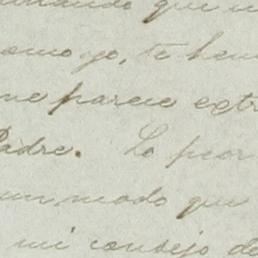 que
como yo, te hem
me parece extr
Padre. Lo peor
un modo que
mi consejo de